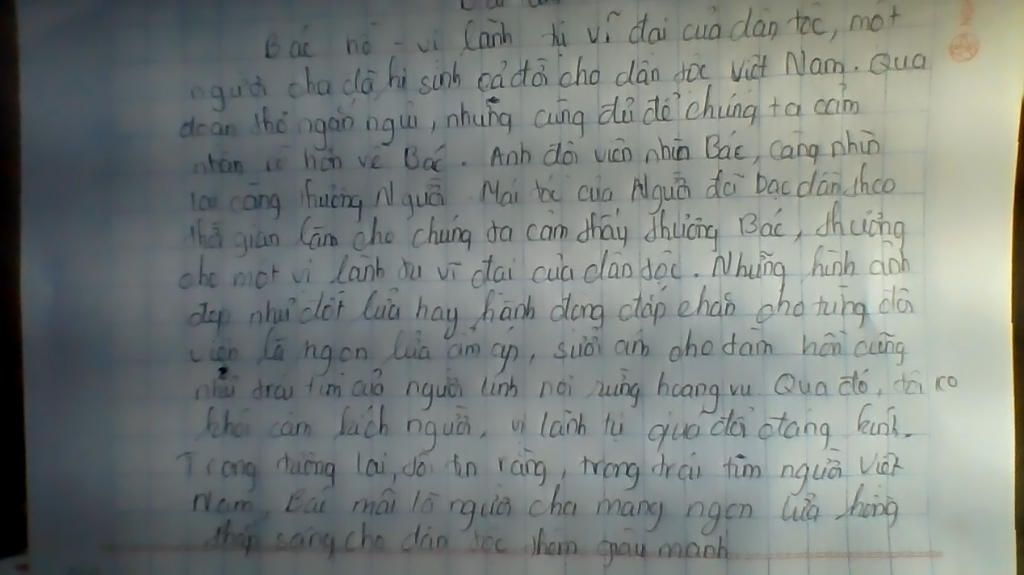 Bác hồ - vị lãnh tụ vĩ đại của dân tộc, một
người cha đã hi sinh cả đời cho dân tộc Việt Nam. Qua
đoạn thơ ngắn ngủi, nhưng cũng đủ để chúng ta cảm
nhận rõ hơn về Bác. Anh đội viên nhìn Bác, càng nhìn
lại càng thương Người Mái tóc của Người đã bạc dần theo
thời gian làm cho chúng ta cảm thấy thương Bác, thương
cho một vị lãnh tụ vĩ đại của dân tộc. Những hình ảnh
đẹp như đốt lửa hay hành động đắp chăn cho từng đội
viên là ngọn lửa ấm áp, sưởi ấm cho tâm hồn cũng
như trái tim của người lính nơi rừng hoang vu Qua đó,
khỏi cảm kích người, vị lãnh tụ quá đổi đáng kính.
Trong tương lai, tôi tin rằng, trong trái tim người Việt
Nam, Bác mãi là người cha mang ngọn lửa hồng
thắp sáng cho dân tộc thêm giàu mạnh